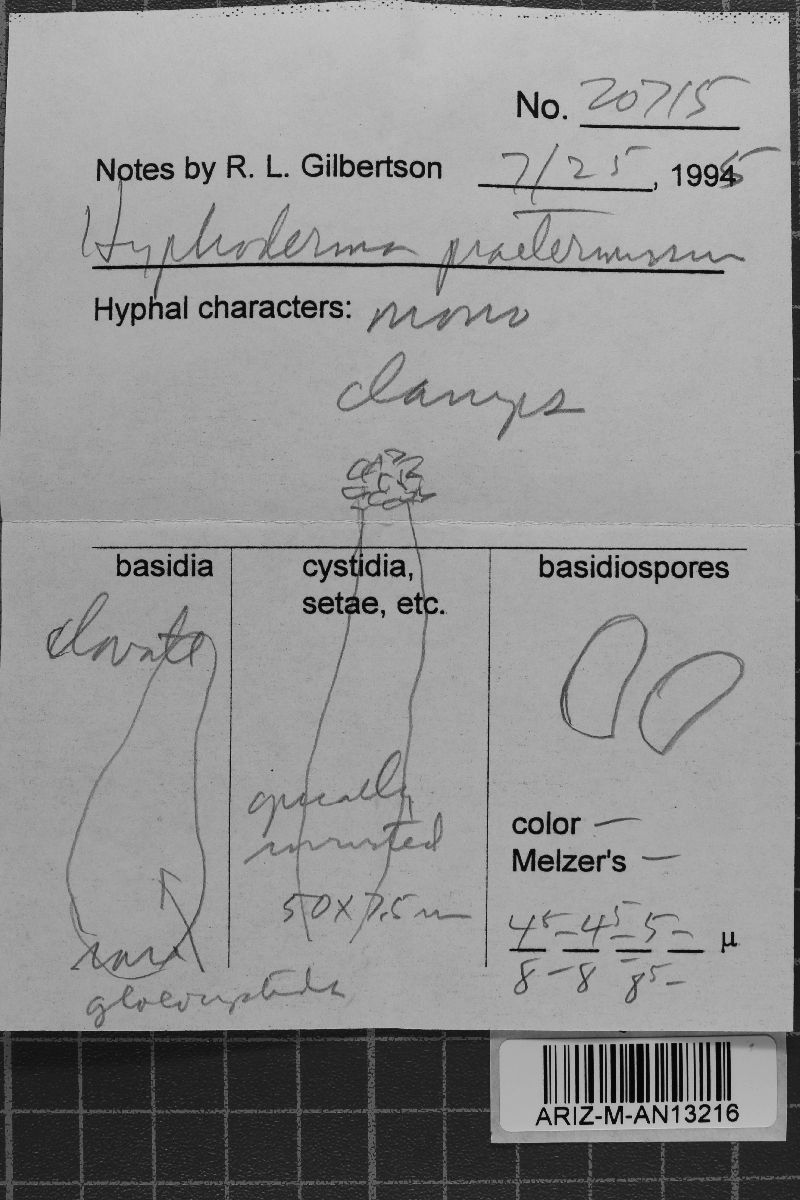 No. 20715
Notes by R. L. Gilbertson 7/25, 1995
Hyphoderma praetermissum
Hyphal characters: mono
clamps
basidia
cystidia,
setae, etc.
basidiospores
clavate
apically
incrusted
50 x 7.5 m
color —
Melzer's —
4⁵ – 4⁵ – 5 – µ
8 – 8 8⁵ –
rare
gloeocystidia
ARIZ-M-AN13216